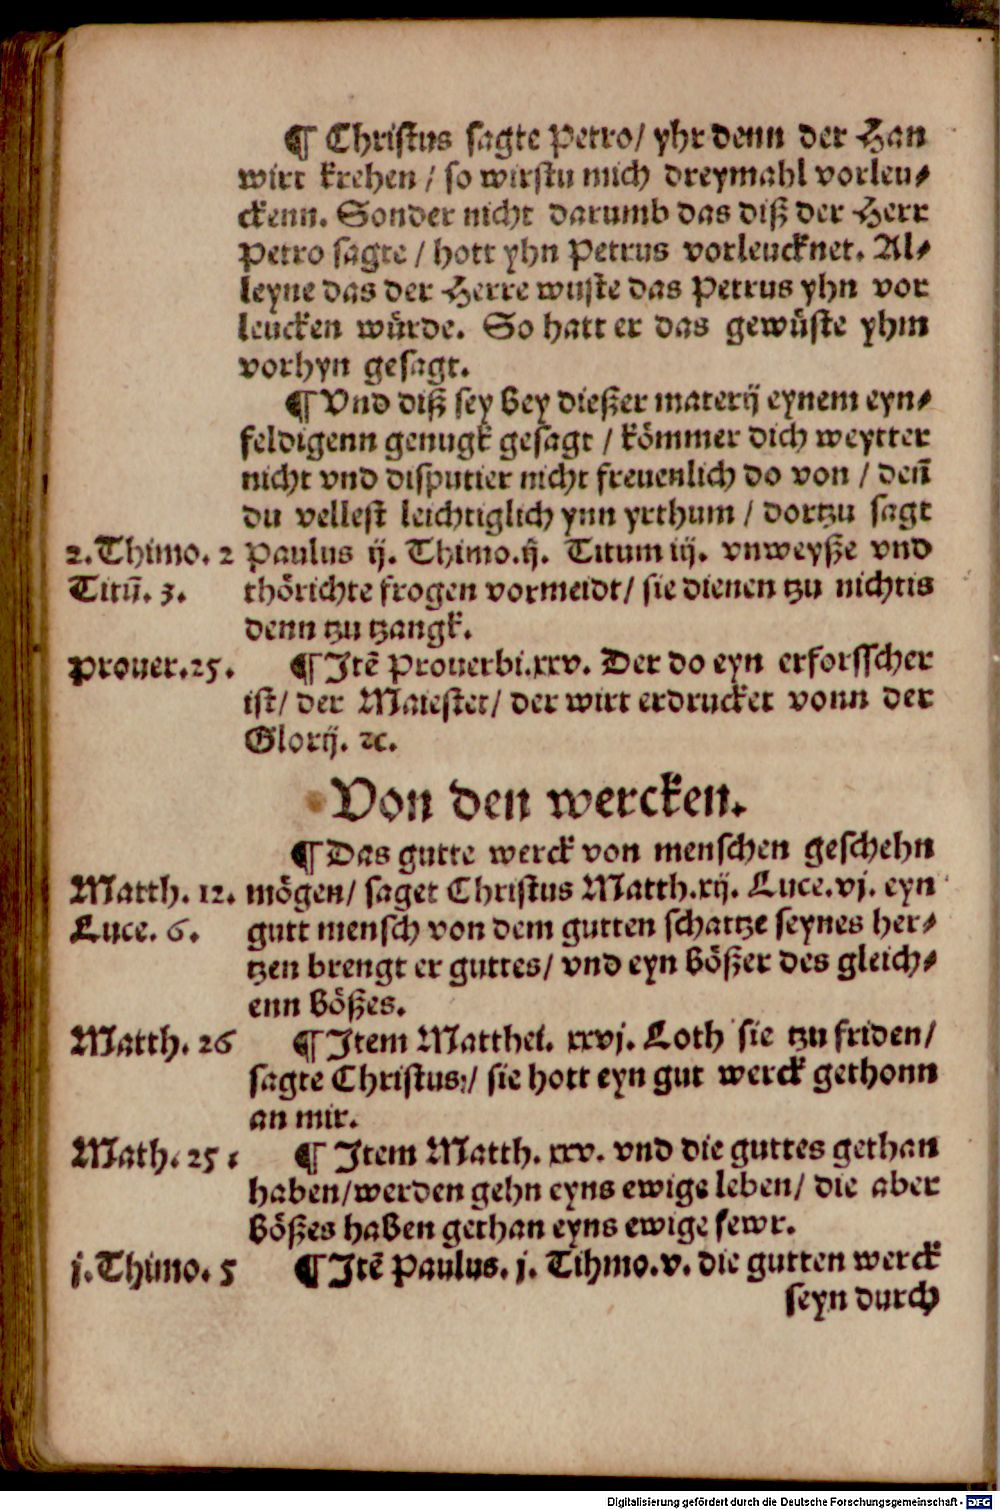 ¶ Christus sagte Petro/ yhr denn der Han
wirt krehen / so wirstu mich dreymahl vorleu⸗
ckenn. Sonder nicht darumb das diß der Herr
Petro sagte / hott yhn Petrus vorleucknet. Al⸗
leyne das der Herre wuste das Petrus yhn vor
leucken wůrde. So hatt er das gewůste yhm
vorhyn gesagt.
¶ Vnd diß sey bey dießer materij eynem eyn⸗
feldigenn genugk gesagt / kömmer dich weytter
nicht vnd disputier nicht freuenlich do von / deñ
du vellest leichtiglich ynn yrthum / dortzu sagt
2. Thimo. 2 Paulus ij. Thimo. ij. Titum iij. vnweyße vnd
Titũ. 3. thörichte frogen vormeidt/ sie dienen tzu nichtis
denn tzu tzangk.
Prouer. 25. ¶ Jtẽ Prouerbi. xxv. Der do eyn erforsscher
ist/ der Maiestet/ der wirt erdrucket vonn der
Glorij. ⁊c.
Von den wercken.
¶ Das gutte werck von menschen geschehn
Matth. 12. mögen/ saget Christus Matth. xij. Luce. vj. eyn
Luce. 6. gutt mensch von dem gutten schattze seynes her⸗
tzen brengt er guttes/ vnd eyn bößer des gleich⸗
enn bößes.
Matth. 26 ¶ Jtem Matthei. xxvj. Loth sie tzu friden/
sagte Christus:/ sie hott eyn gut werck gethonn
an mir.
Math. 25 : ¶ Jtem Matth. xxv. vnd die guttes gethan
haben/werden gehn eyns ewige leben/ die aber
bößes haben gethan eyns ewige fewr.
j. Thimo. 5 ¶ Jtẽ Paulus. j. Tihmo. v. die gutten werck
seyn durch
Digitalisierung gefördert durch die Deutsche Forschungsgemeinschaft - DFG